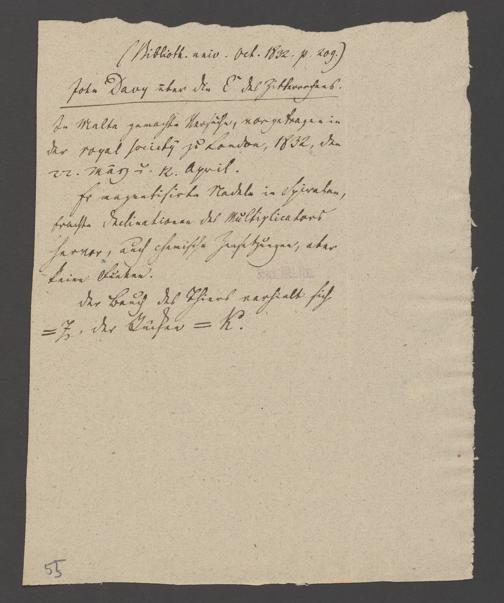 (Biblioth. univ. Oct. 1832. p. 209.)
John Davy über die E des Zitterrochens.
In Malta gemachte Versuche, vorgetragen in
der royal society zu London, 1832, den
22. März u. 12. April.
Er magnetisirte Nadeln in Spiralen,
brachte Declinationen des Multiplicators
hervor, auch chemische Zersetzungen, aber
keine Funken.
der Bauch des Thiers verhielt sich
= Z, der Rücken = K.
55